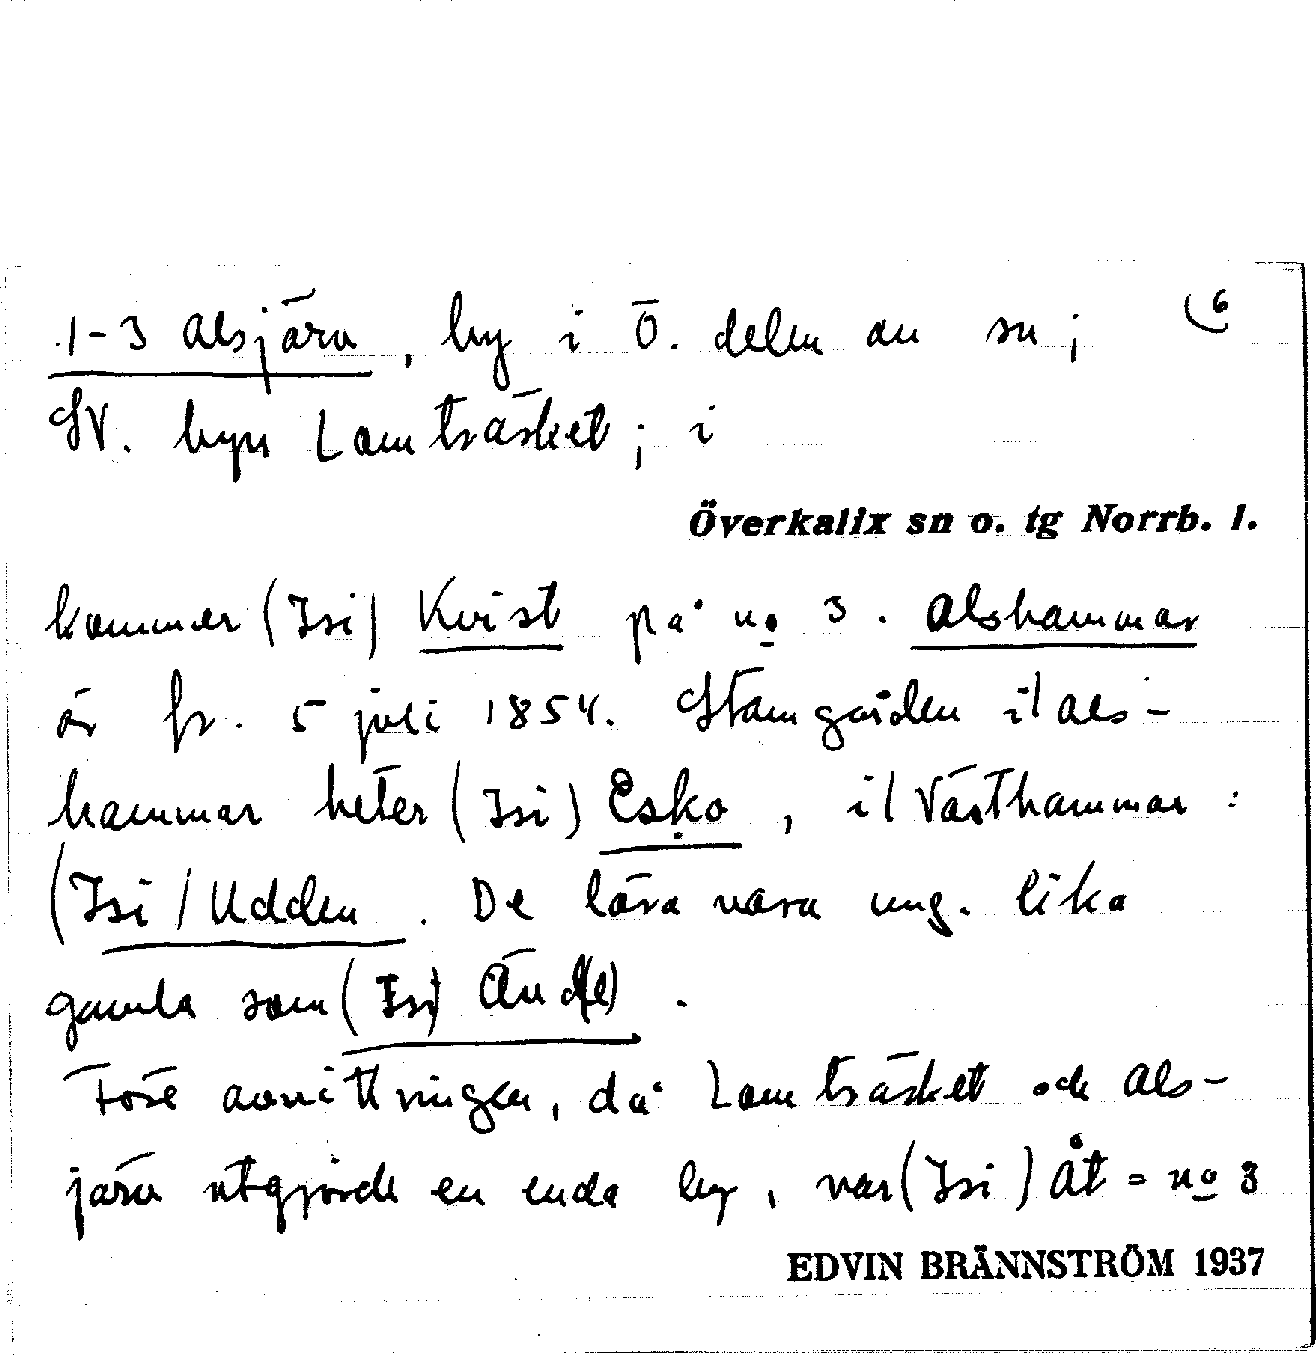 1-3 Alsjärv, by i Ö. delen av sn; 6
SV. byn Lomträsket; i
Överkalix sn o. tg Norrb. l.
kommer (Isi) Kvist på no 3. Alshammar
är fr. 5 juli 1854. Stamgården i/ Als-
hammar heter (Isi) Esko, i/ Västhammar:
(Isi/ Udden. De lära vara ung. lika
gamla som (Isi)
Före avvittringen, då Lomträsket och Als-
järv utgjorde en enda by, var (Isi) Åt = no 3
EDVIN BRÄNNSTRÖM 1937